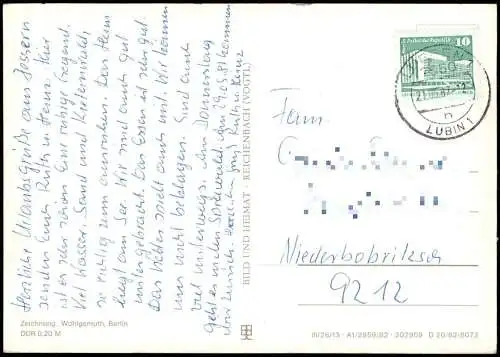 Herzliche Urlaubsgrüße aus Jessern
senden Euch Ruth u. Heinz. Hier
ist es sehr schön. Eine ruhige Gegend.
Viel Wasser, Sand und Kiefernwald,
so richtig zum ausruhen. Das Heim
liegt am See. Wir sind auch gut
untergebracht. Das Essen ist sehr gut.
Das Wetter spielt auch mit. Wir können
uns nicht beklagen. Sind auch
viel unterwegs. Am Donnerstag
geht es in den Spreewald. Am 29.5.81 kommen
wir zurück. Ruth u. Heinz
Zeichnung: Wohlgemuth, Berlin
DDR 0,20 M
BILD UND HEIMAT · REICHENBACH (VOGTL)
10
LUBIN 1
n
Fam.
Niederbobritzsch
9212
III/26/13 · A1/2959/82 · 302909 D 20/82-8073